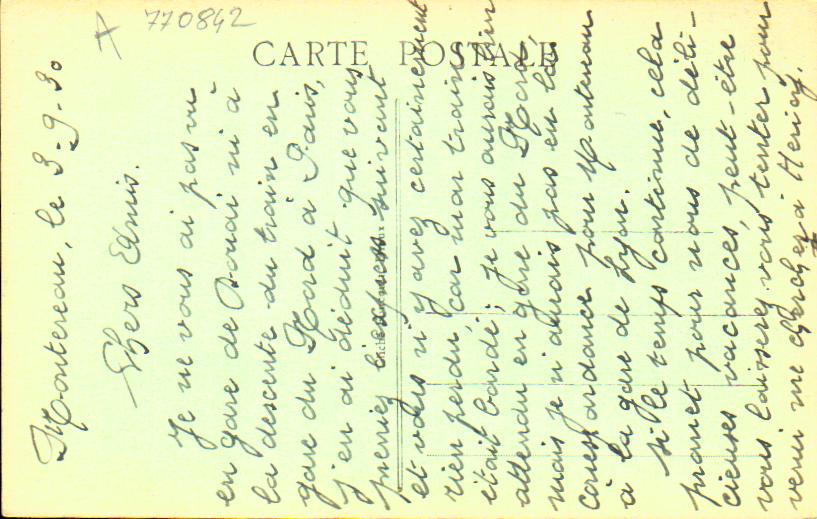 770842
CARTE POSTALE
Montereau, le 3-9-30
Chers Amis.
Je ne vous ai pas vu
en gare de Douai ni à
la descente du train en
gare du Nord à Paris,
j'en ai déduit que vous
preniez l'express suivant
et vous n'y avez certainement
rien perdu, car mon train
était bondé ; je vous aurais bien
attendu en gare du Nord,
mais je n'aurais pas eu la
correspondance pour Montereau
à la gare de Lyon.
Si le temps continue, cela
promet pour nous de déli-
cieuses vacances, peut-être
vous laisserez vous tenter pour
venir me chercher à